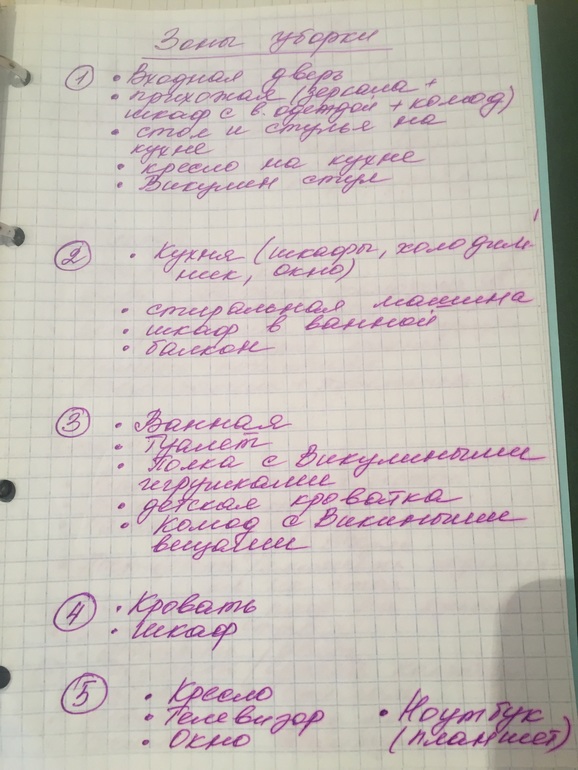 Зоны уборки
① • Входная дверь
• прихожая (зеркала +
шкаф с в. одеждой + комод)
• стол и стулья на
кухне
• кресло на кухне
• Викулин стул
② • Кухня (шкафы, холодиль
ник, окно)
• стиральная машина
• шкаф в ванной
• балкон
③ • Ванная
• Туалет
• Полка с Викулиными
игрушками
• детская кроватка
• Комод с Викиными
вещами
④ • Кровать
• Шкаф
⑤ • Кресло
• Телевизор • Ноутбук
• Окно (планшет)